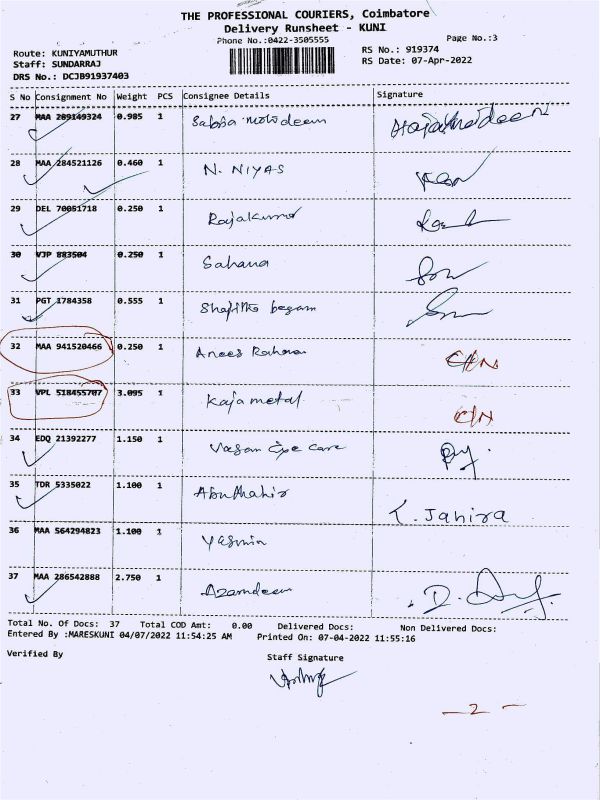 THE PROFESSIONAL COURIERS, Coimbatore
Delivery Runsheet - KUNI
Phone No.:0422-3505555
Page No.:3
Route: KUNIYAMUTHUR
RS No.: 919374
Staff: SUNDARRAJ
RS Date: 07-Apr-2022
DRS No.: DCJB91937403
S No Consignment No Weight PCS Consignee Details Signature
27 MAA 289149324 0.985 1
28 MAA 284521126 0.460 1 N. NIYAS
29 DEL 70051718 0.250 1 Rajakumar
30 VJP 883504 0.250 1 Sahana
31 PGT 1784358 0.555 1 begam
32 MAA 941520466 0.250 1 Anees Rahman
33 VPL 518455707 3.095 1 Kaja metal
34 EDQ 21392277 1.150 1 Vasan Eye care
35 TDR 5335022 1.100 1 Abuthahir
T. Jahira
36 MAA 564294823 1.100 1 Yasmin
37 MAA 286542888 2.750 1 Azamdeen
Total No. Of Docs: 37 Total COD Amt: 0.00 Delivered Docs: Non Delivered Docs:
Entered By :MARESKUNI 04/07/2022 11:54:25 AM Printed On: 07-04-2022 11:55:16
Verified By
Staff Signature
- 2 -